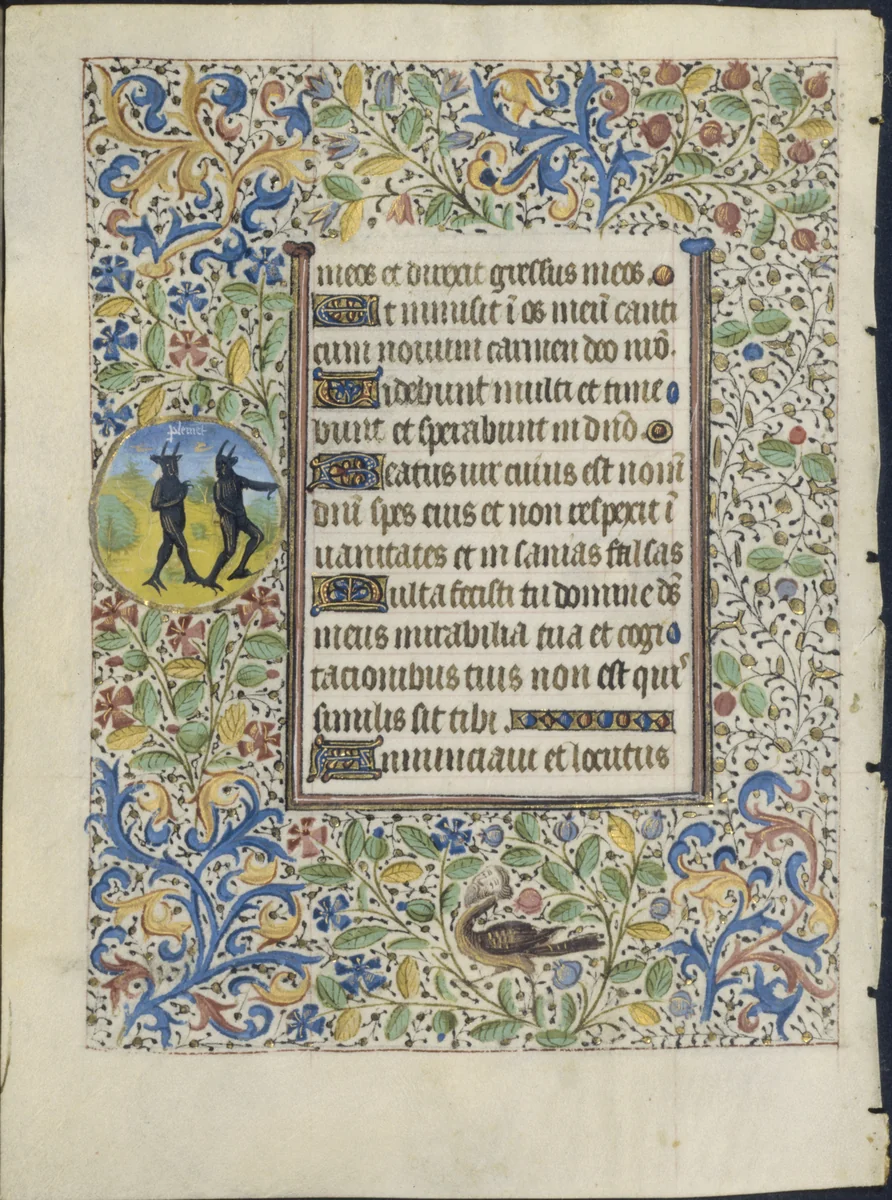 meos et direxit gressus meos.
Et inmisit ī os meū canti
cum nouum carmen deo nrō.
Uidebunt multi et time
bunt et sperabunt in dnō.
Beatus uir cuius est nomē
dnī spes eius et non respexit ī
uanitates et insanias falsas
Multa fecisti tu domine ds̄
meus mirabilia tua et cogi
tacionibus tuis non est qui
similis sit tibi.
Annunciaui et locutus